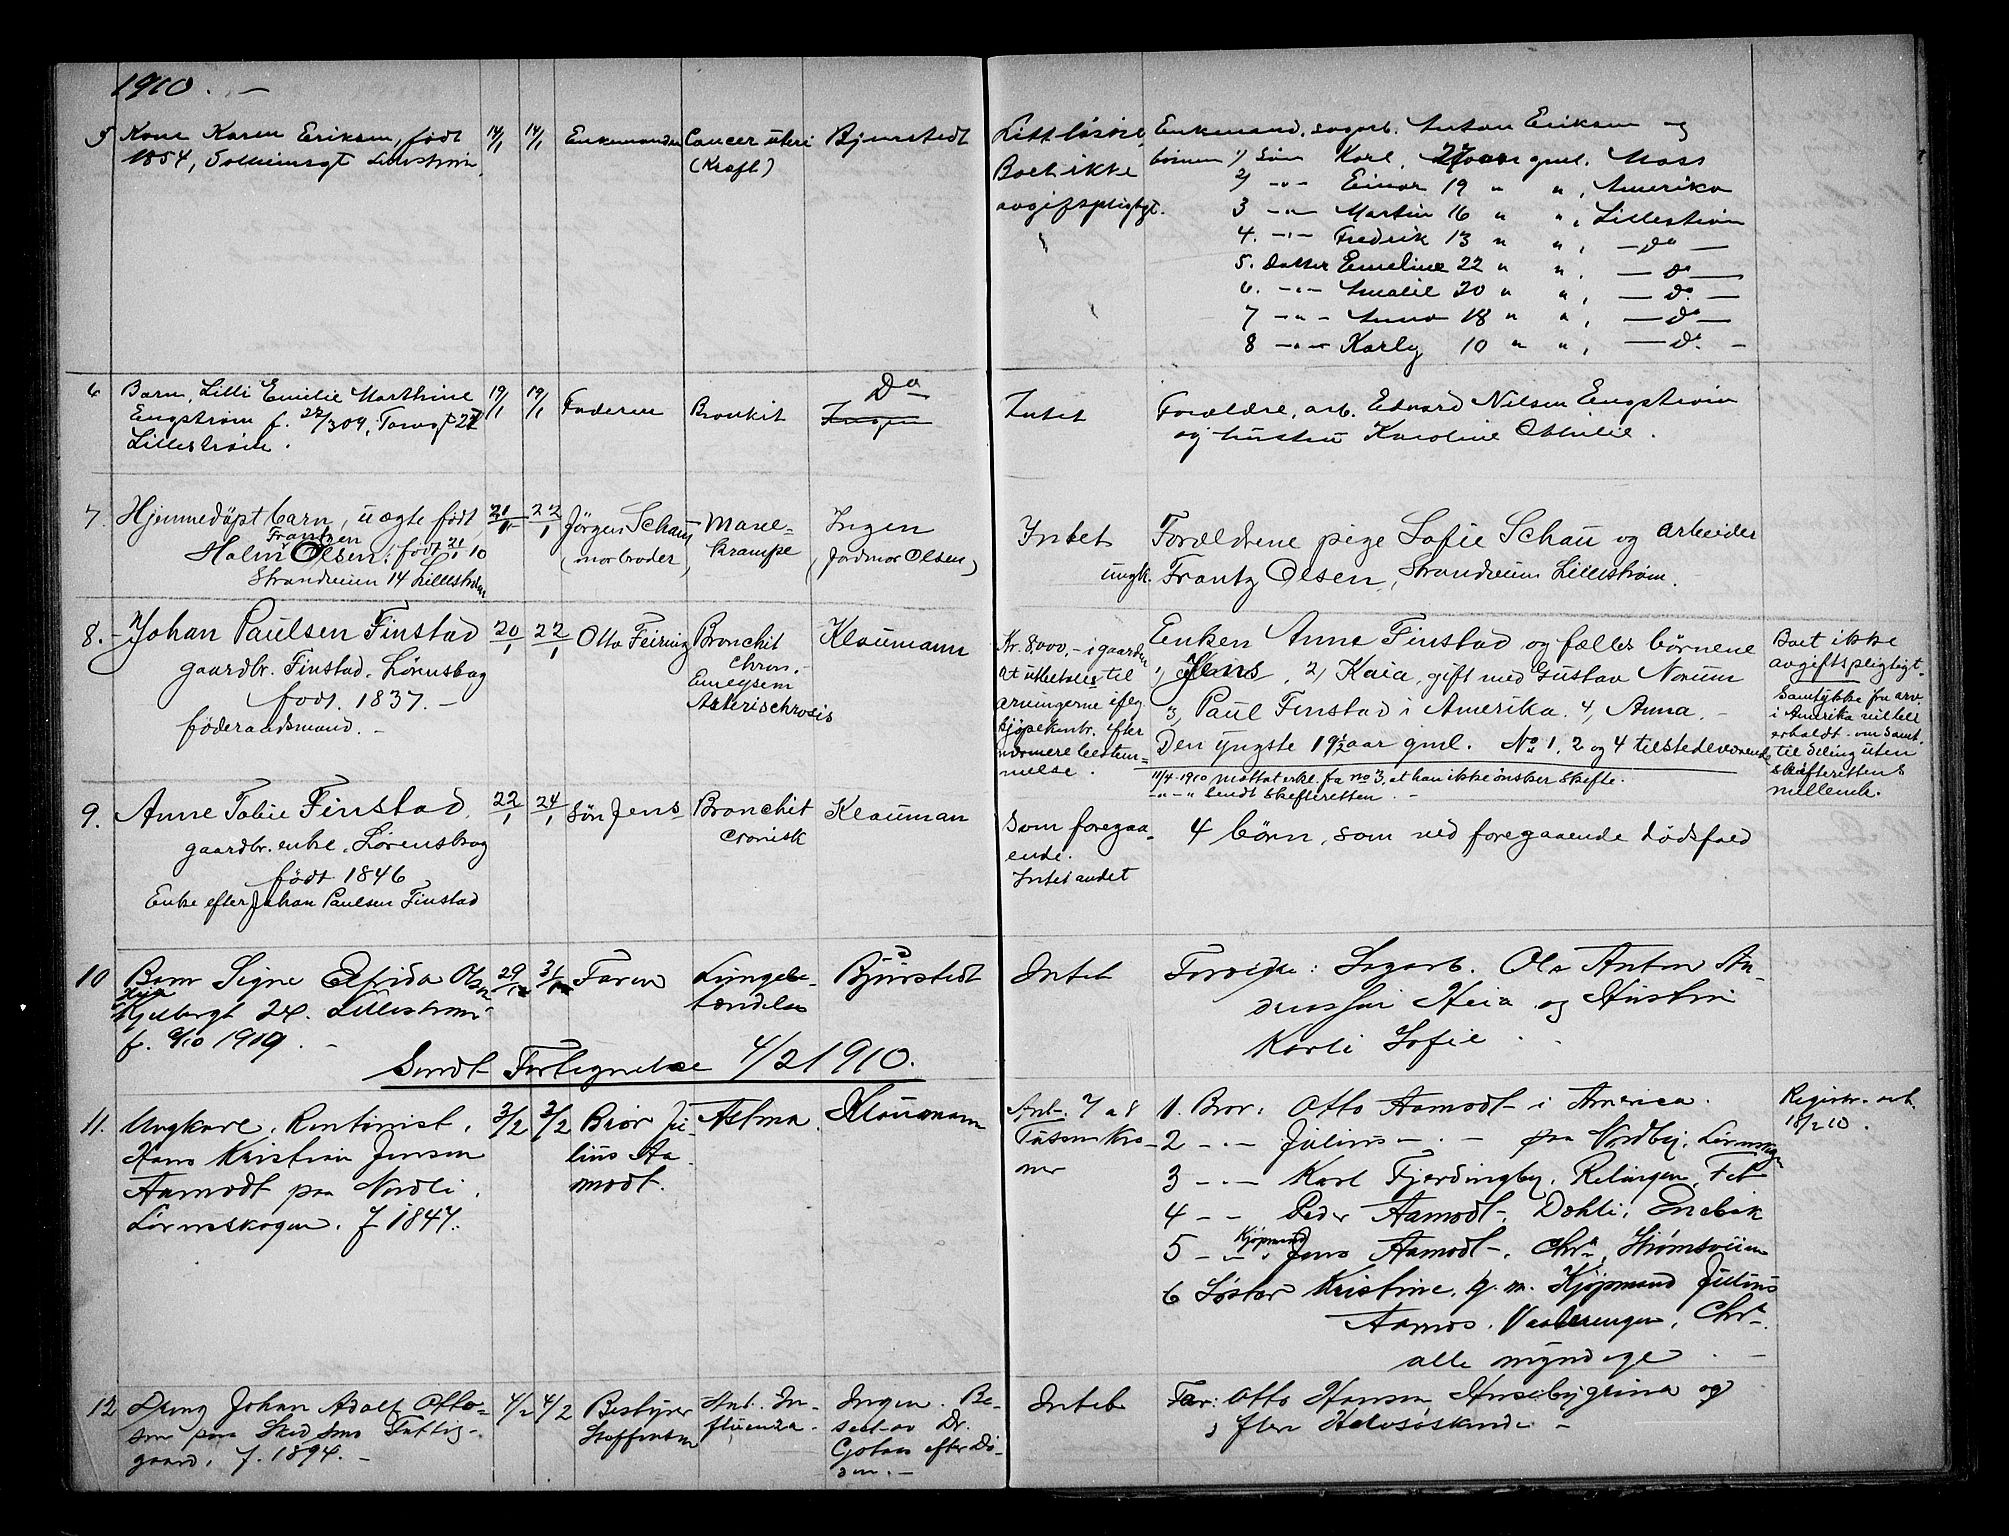 1910. —
5 Kone Karen Eriksen, født
1854, Lillestrøm
14/1 14/1
Enkemanden
Cancer uteri
(Kræft)
Bjurstedt
Litt løsøre
Boet ikke
avgiftspligtgt.
Enkemand, sagarb. Anton Eriksen og
børnene 1) Søn Karl, 27 aar gml. Moss
2) -"- Einar 19 " ", Amerika
3 -"- Martin 16 " ", Lillestrøm
4. -"- Fredrik 13 " ", — do —
5. Datter Emeline 22 " ", — do —
6. -"- Amalie 20 " ", — do —
7 -"- Anna 18 " ", — do —
8 -"- Karly 10 " ", — do —
6 Barn, Lilli Emilie Marthine
Engstrøm f. 22/3 09, Torvgt 27
Lillestrøm.
19/1 19/1
Faderen
Bronkit
Do
Ingen
Intet
Forældre, arb. Edvard Nilsen Engstrøm
og hustru Karoline Othilie.
7. Hjemmedøpt barn, uægte født
Frantzen
Halm Olsen, født 21/1 10
Strandveien 14 Lillestrøm
21/1 22/1
Jörgen Schau
(morbroder)
Mavekrampe
Ingen
(Jordmor Olsen)
Intet
Forældrene pige Sofie Schau og arbeider
ungk. Frantz Olsen, Strandveien Lillestrøm.
8. Johan Paulsen Finstad
gaardbr. Finstad, Lørenskog
født. 1837. —
føderaadsmand. —
20/1 22/1
Otto Feiring
Bronchit
chron.
Emfysem
Arterischrosis
Klaumann
Kr. 8,000,- i gaarden
at utbetales til
arvingerne ifølg.
kjøpekontr. efter
nærmere bestem=
melse.
Enken Anne Finstad og fælles børnene
1, Jens, 2, Kaia, gift med Gustav Norum
3, Paul Finstad i Amerika. 4, Anna. —
Den yngste 19 1/2 aar gml. No 1, 2 og 4 tilstedeværende
11/4-1910 mottat erkl. fra no 3, at han ikke ønsker skifte.
-"-"- sendt skifteretten. —
Boet ikke
avgiftspligtigt.
Samtykke fra arv.
i Amerika vil bli
erholdt om samt.
til deling uten
skifterettens
mellemk.
9. Anne Tobie Finstad,
gaardbr. enke, Lørenskog
født 1846
Enke efter Johan Paulsen Finstad
22/1 24/1
Søn Jens
Bronchit
cronisk
Klauman
Som foregaa-
ende.
Intet andet
4 børn, som ved foregaaende dødsfald
10 Barn Signe Elfrida Olsen
Heia
Kjelbergt 24. Lillestrøm
f. 9/10 1909. —
29/1 31/1
Faren
Lungebe-
tændelse
Bjurstedt
Intet
Forældre: Sagarb. Ole Anton An-
dreassen Heia og Hustru
Karli Sofie
Sendt Fortegnelse 4/2 1910.
11. Ungkarl, Rentenist,
Hans Kristian Jensen
Aamodt paa Nordli,
Lørenskogen. f 1847.
3/2 3/2
Bror Ju-
lius Aa-
modt.
Astma.
Klaumann
Ant. 7 a 8
Tusen Kro-
ner
1. Bror: Otto Aamodt i America.
2 - " - Julius - " - paa Nordby, Lørenskogen
3 - " - Karl Fjerdingby, Relingen, Fet
4 - " - Peder Aamodt, Dahli, Enebak
Kjøpmand
5 - " - Jens Aamodt, Chra, Strømsveien
6 Søster Kristine, g. m. Kjøpmand Julius
Aamos. Vaalerengen, Chra.
alle myndige. —
Registr. avh.
18/2 10.
12 Dreng Johan Adolf Otto-
sen paa Skedsmo Fattig-
gaard, f. 1894. —
4/2 4/2
Bestyrer
Stoffensen
Ant. In-
fluenza.
Ingen. Be-
set av Dr.
efter Dø-
den. —
Intet
Far: Otto Hansen, Husebygrina og
flere Halvsøskende —